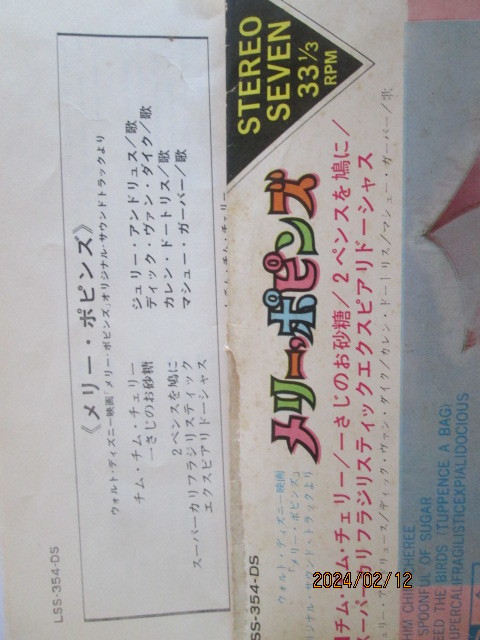 《メリー・ポピンズ》
ウォルト・ディズニー映画「メリー・ポピンズ」オリジナル・サウンドトラックより
チム・チム・チェリー
一さじのお砂糖
2ペンスを鳩に
スーパーカリフラジリスティック
エクスピアリドーシャス
ジュリー・アンドリュス/歌
ディック・ヴァン・ダイク/歌
カレン・ドートリス/歌
マシュー・ガーバー/歌
LSS-354-DS
STEREO
SEVEN
33 1/3
RPM
メリー・ポピンズ
ウォルト・ディズニー映画
「メリー・ポピンズ」
ジナル・サウンド・トラックより
チム・チム・チェリー/一さじのお砂糖/2ペンスを鳩に/
スーパーカリフラジリスティックエクスピアリドーシャス
ュリー・アンドリュース/ディック・ヴァン・ダイク/カレン・ドートリス/マシュー・ガーバー/歌
SS-354-DS
IM CHIM CHEREE
SPOONFUL OF SUGAR
EED THE BIRDS (TUPPENCE A BAG)
PERCALIFRAGILISTICEXPIALIDOCIOUS
2024/02/12